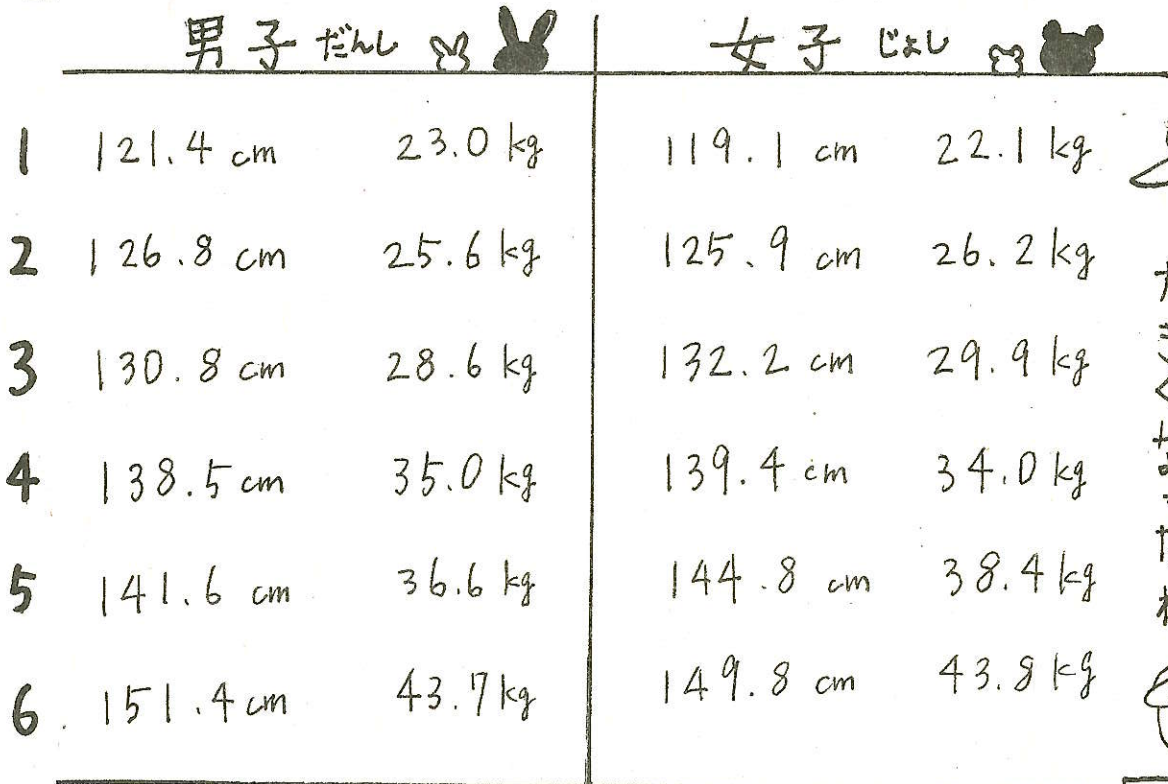 男子 だんし 女子 じょし
1 121.4 cm 23.0 kg 119.1 cm 22.1 kg
2 126.8 cm 25.6 kg 125.9 cm 26.2 kg
3 130.8 cm 28.6 kg 132.2 cm 29.9 kg
4 138.5 cm 35.0 kg 139.4 cm 34.0 kg
5 141.6 cm 36.6 kg 144.8 cm 38.4 kg
6 151.4 cm 43.7 kg 149.8 cm 43.8 kg